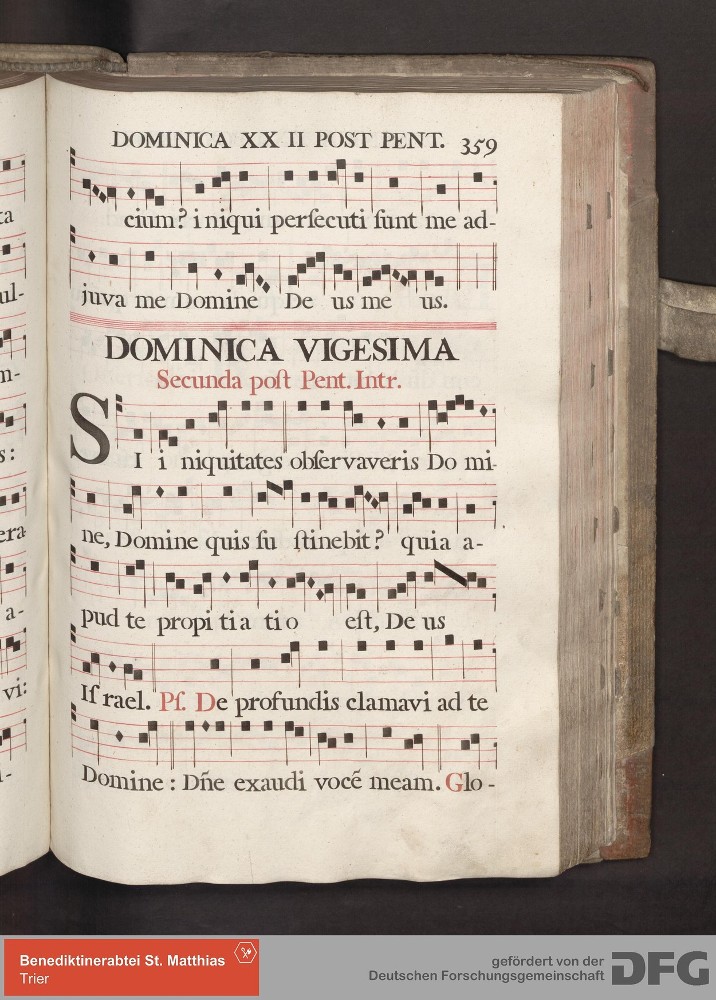 DOMINICA XX II POST PENT. 359
cium? iniqui perſecuti ſunt me ad-
juva me Domine De us me us.
DOMINICA VIGESIMA
Secunda poſt Pent. Intr.
SI i niquitates obſervaveris Do mi-
ne, Domine quis ſu ſtinebit? quia a-
pud te propi tia tio eſt, De us
Iſ rael. Pſ. De profundis clamavi ad te
Domine: Dñe exaudi vocẽ meam. Glo-
ta
ul-
m-
s:
era
a-
vi:
Benediktinerabtei St. Matthias
Trier
gefördert von der
Deutschen Forschungsgemeinschaft
DFG